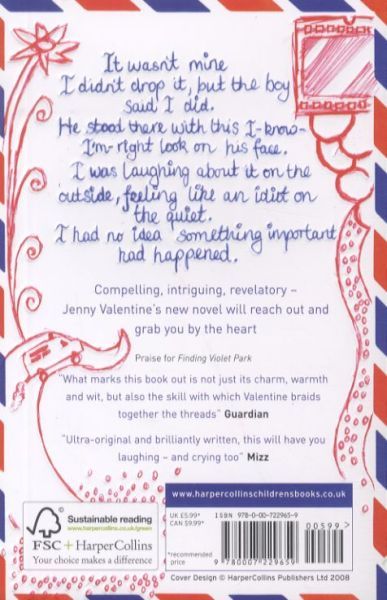 It wasn't mine
I didn't drop it, but the boy
said I did.
He stood there with this I-know-
I'm-right look on his face.
I was laughing about it on the
outside, feeling like an idiot on
the quiet.
I had no idea something important
had happened.
Compelling, intriguing, revelatory –
Jenny Valentine's new novel will reach out and
grab you by the heart
Praise for Finding Violet Park
"What marks this book out is not just its charm, warmth
and wit, but also the skill with which Valentine braids
together the threads" Guardian
"Ultra-original and brilliantly written, this will have you
laughing – and crying too" Mizz
Sustainable reading
www.harpercollins.co.uk/green
FSC + HarperCollins
Your choice makes a difference
www.harpercollinschildrensbooks.co.uk
UK £5.99*
CAN $9.99*
*recommended
price
ISBN 978-0-00-722965-9
00599>
9 780007 229659
Cover Design © HarperCollins Publishers Ltd 2008